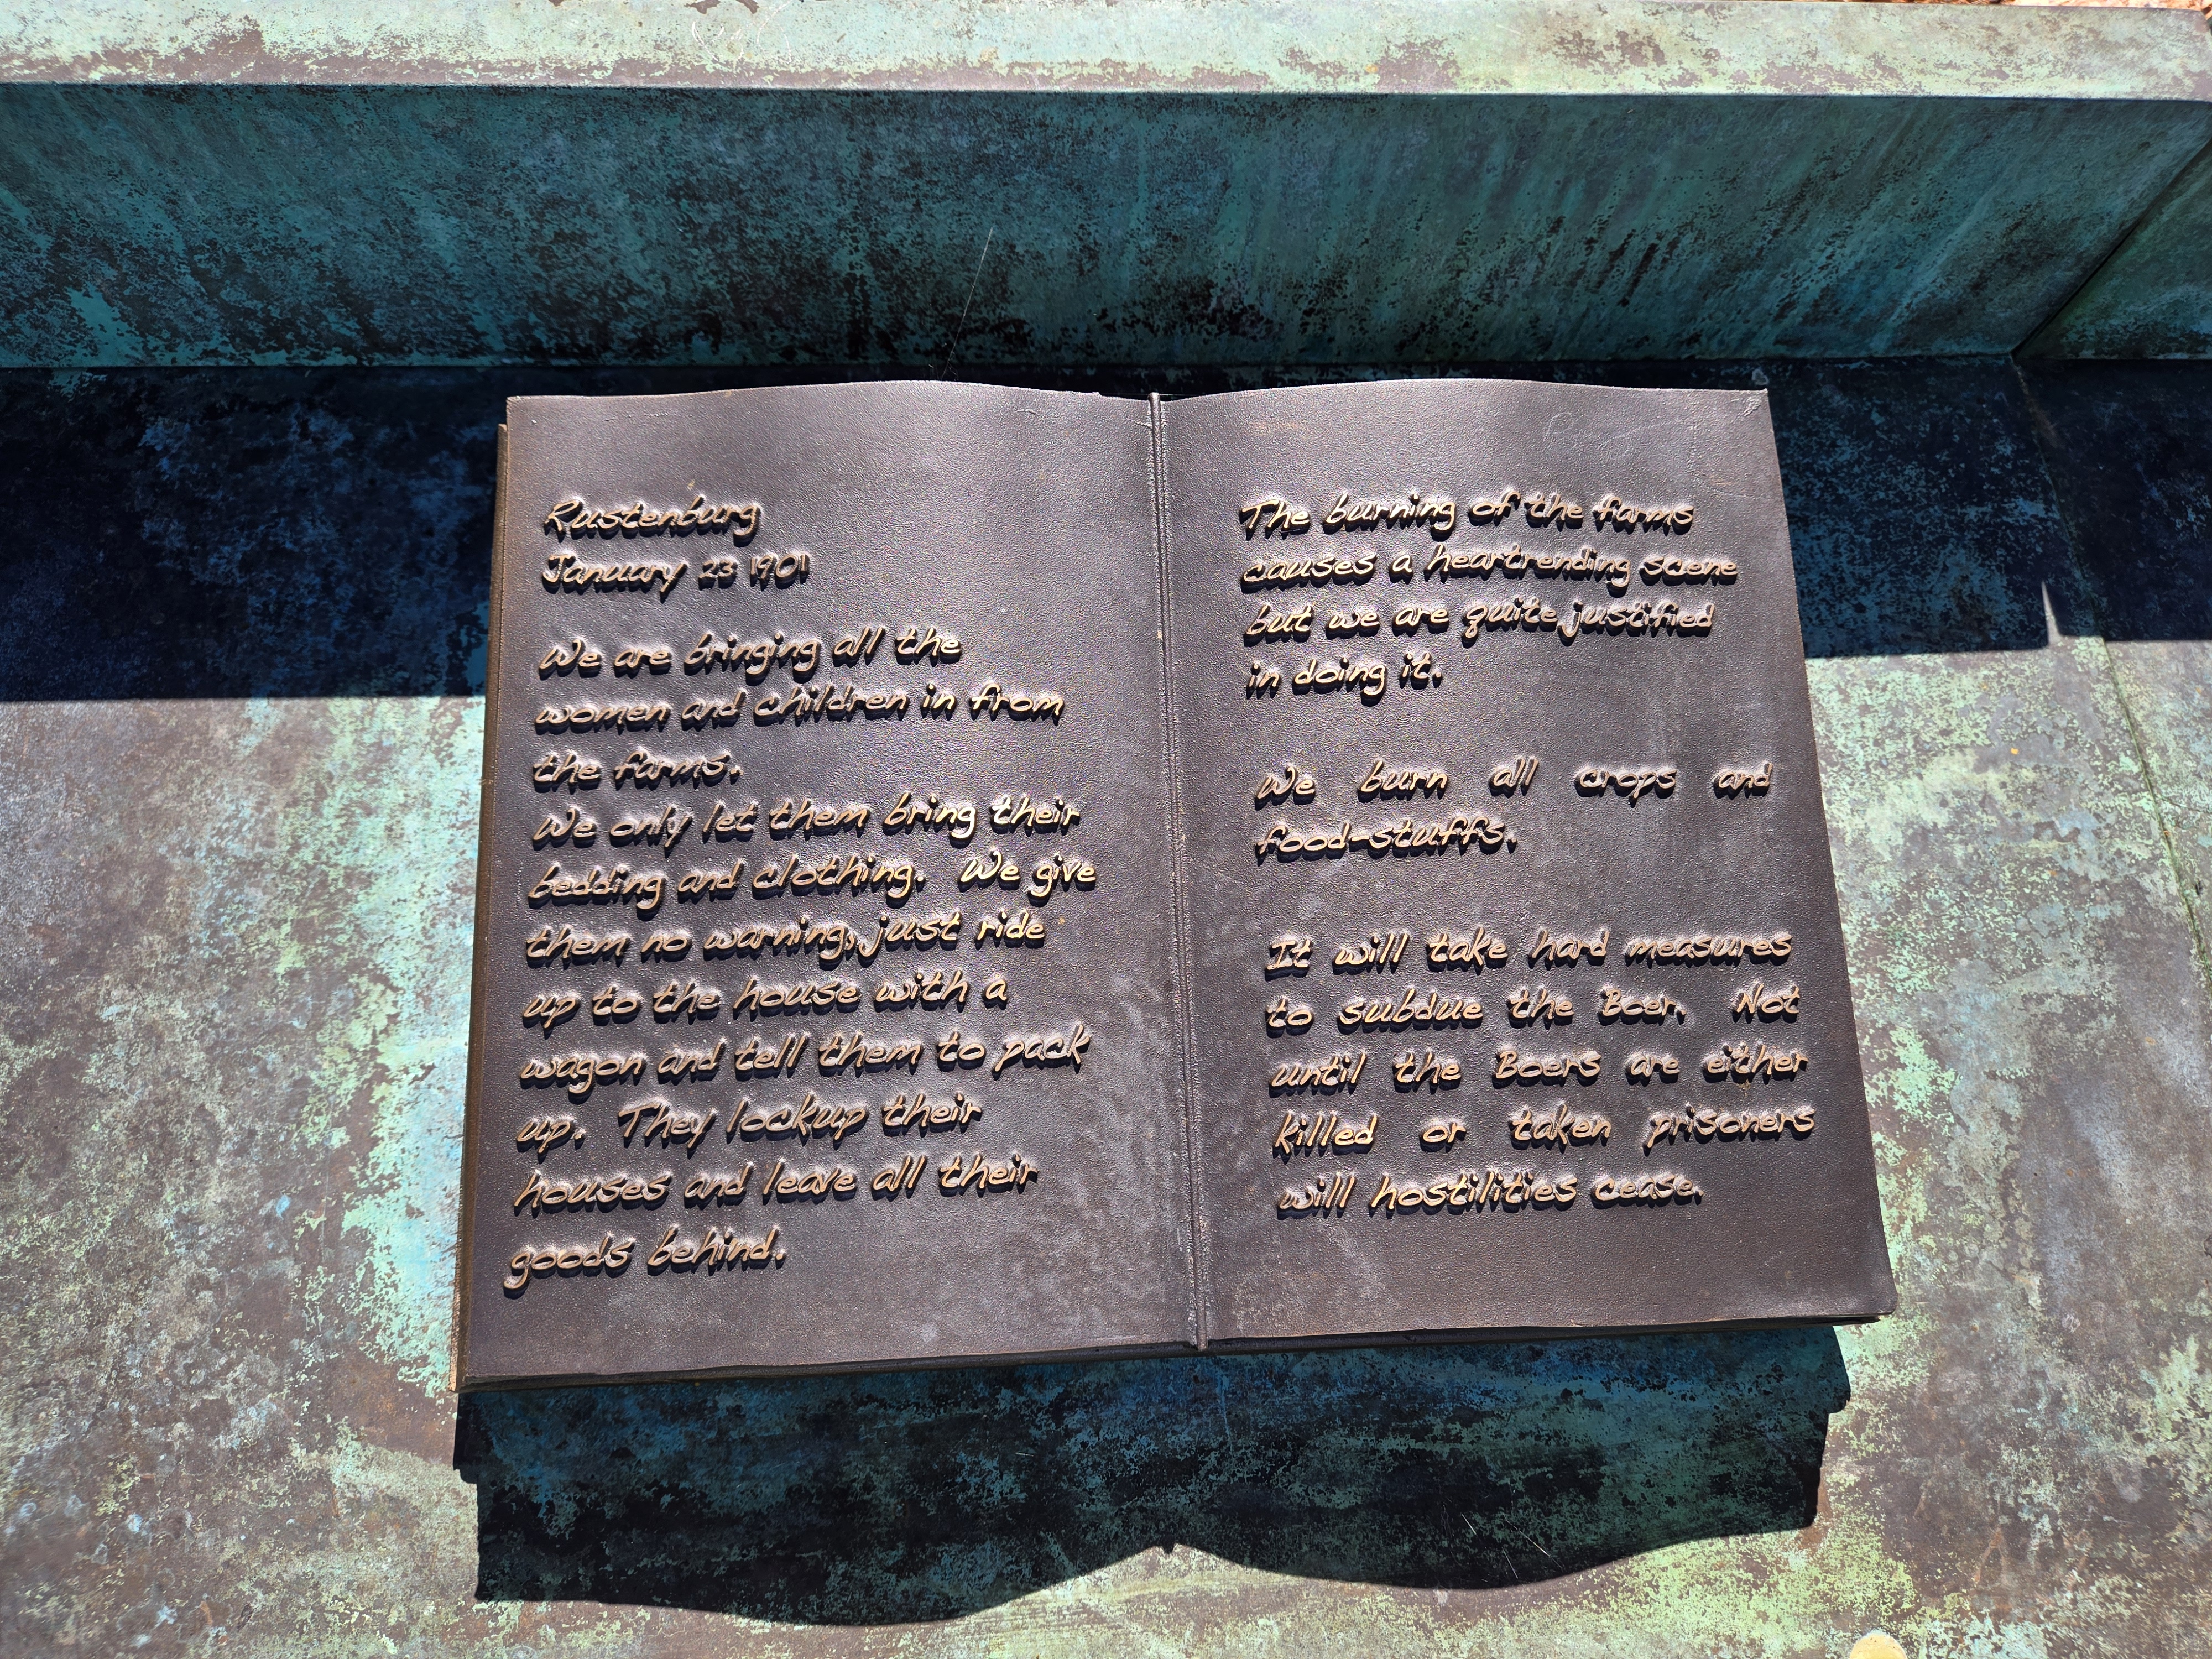 Rustenburg
January 23 1901
We are bringing all the
women and children in from
the farms.
We only let them bring their
bedding and clothing. We give
them no warning, just ride
up to the house with a
wagon and tell them to pack
up. They lockup their
houses and leave all their
goods behind.
The burning of the farms
causes a heartrending scene
but we are quite justified
in doing it.
We burn all crops and
food-stuffs.
It will take hard measures
to subdue the Boer. Not
until the Boers are either
killed or taken prisoners
will hostilities cease.